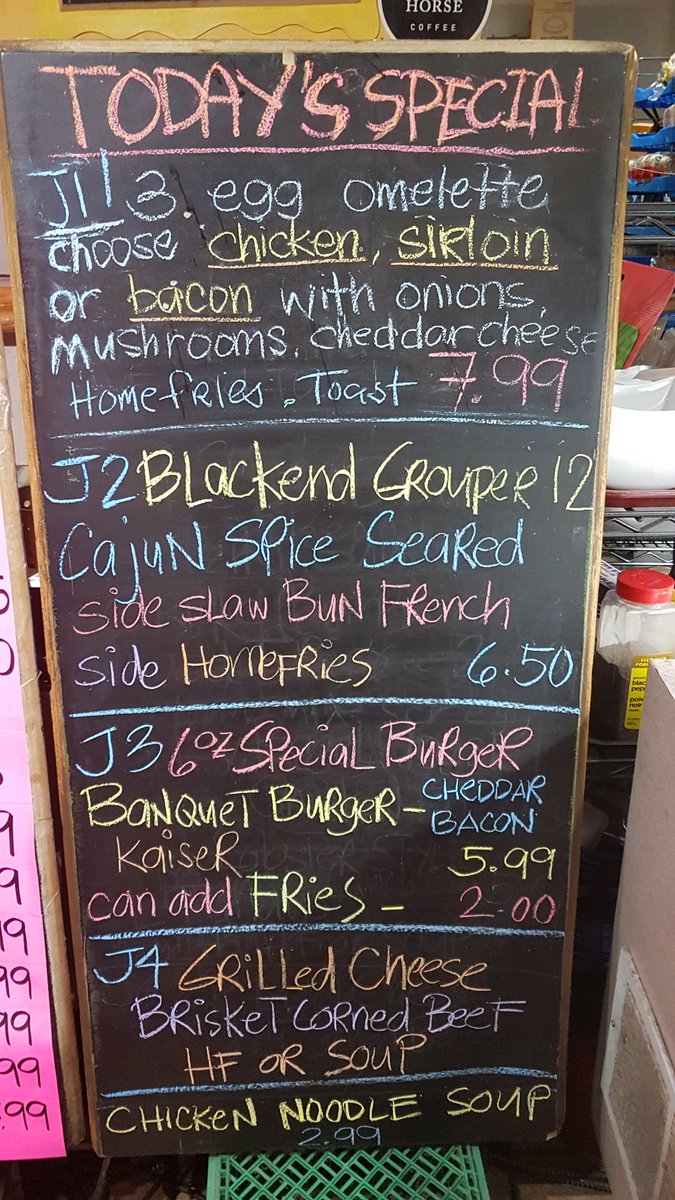 HORSE
COFFEE
TODAY'S SPECIAL
J1 3 egg omelette
choose chicken, sirloin
or bacon with onions,
mushrooms. cheddar cheese
Homefries. Toast 7.99
J2 BLackend GROUPER 12
Cajun Spice Seared
side slaw BUN French
side HOMEFRIES 6.50
J3 6oz SPecial BURGER
BANQUET BURGER - CHEDDAR
BACON
KAISER 5.99
can add FRies - 2.00
J4 GRilled Cheese
BRISKET CORNED BEEF
HF OR SOUP
CHICKEN NOODLE SOUP
2.99